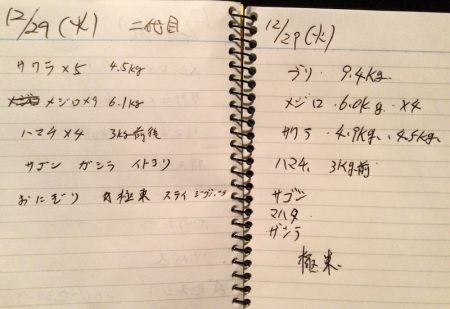 12/29(火) 二代目
サワラ×5 4.5kg
メジロ×4 6.1kg
ハマチ×4 3kg前後
サゴシ ガシラ イトヨリ
おにぎり 肉極東 スライジギング
12/29(火)
ブリ 9.4kg
メジロ 6.0kg ×4
サワラ 4.9kg、4.5kg
ハマチ 3kg前
サゴシ
マハタ
ガシラ
極東